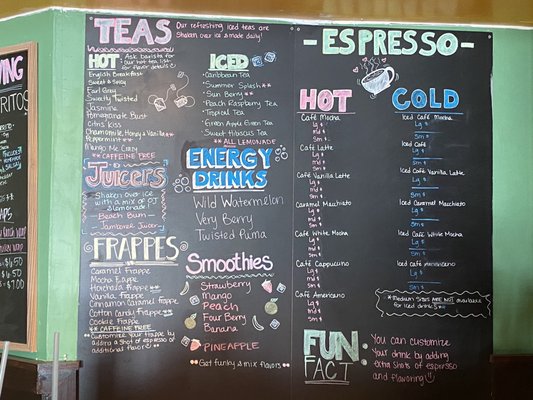 WING
RITOS
APS
$6.50
$6.50
$7.00
TEAS
Our refreshing iced teas are
Shaken over ice & made daily!
HOT
Ask barista for
our hot tea list
for flavor details
English Breakfast
Sweet & Spicy
Earl Grey
Sweetly Twisted
Jasmine
Pomegranate Burst
Citrus Kiss
Chamomile, Honey & Vanilla**
Peppermint**
Mango Me Crazy
** CAFFEINE FREE
ICED
Caribbean Tea
Summer Splash **
Sun Berry **
Peach Raspberry Tea
Tropical Tea
Green Apple Green Tea
Sweet Hibiscus Tea
** ALL LEMONADE
Juicers
Shaken over ice
with a mix of
& lemonade
Beach Bum
Jamboree Juicer
ENERGY
DRINKS
Wild Watermelon
Very Berry
Twisted Puma
FRAPPES
Caramel Frappe
Mocha Frappe
Horchata Frappe**
Vanilla Frappe
Cinnamon Caramel Frappe
Cotton Candy Frappe**
Cookie Frappe
** CAFFEINE FREE
Customize your frappe by
adding a shot of espresso or
additional flavor
Smoothies
Strawberry
Mango
Peach
Four Berry
Banana
PINEAPPLE
Get funky & mix flavors
-ESPRESSO-
HOT
Café Mocha
Lg $
md $
Sm $
Café Latte
Lg $
md $
Sm $
Café Vanilla Latte
Lg $
md $
Sm $
Caramel Macchiato
Lg $
md $
Sm $
Café White Mocha
Lg $
md $
Sm $
Café Cappuccino
Lg $
md $
Sm $
Café Americano
Lg $
md $
Sm $
COLD
Iced Café Mocha
Lg $
Sm $
Iced Café
Lg $
Sm $
Iced Café Vanilla Latte
Lg $
Sm $
Iced Caramel Macchiato
Lg $
Sm $
Iced Café White Mocha
Lg $
Sm $
Iced Café Americano
Lg $
Sm $
*Medium sizes ARE NOT available
for iced drinks**
FUN
FACT
You can customize
your drink by adding
extra shots of espresso
and flavoring!